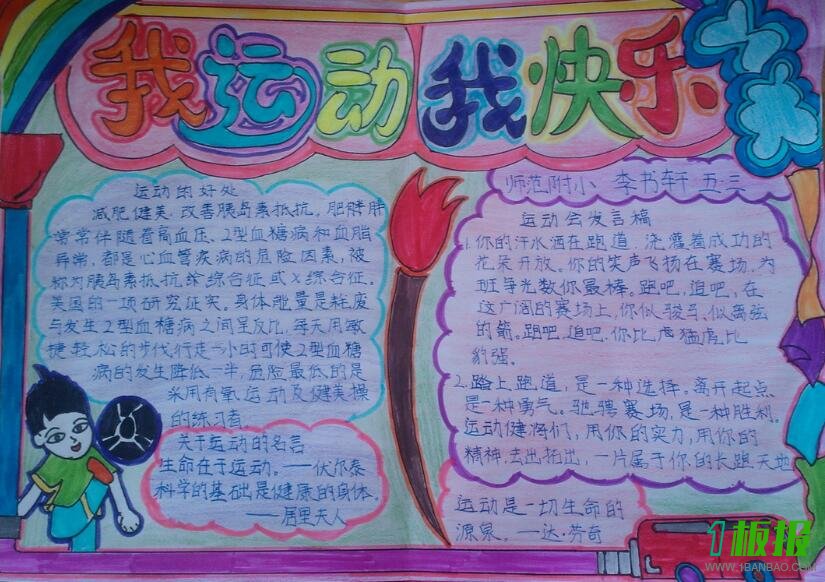 我运动 我快乐
运动的好处
减肥健美,改善胰岛素抵抗。肥胖
常常伴随着高血压、2型血糖病和血脂
异常,都是心血管疾病的危险因素,被
称为胰岛素抵抗综合征或X综合征。
美国的一项研究证实。身体能量是耗废
与发生2型血糖病之间呈反比,每天用敏
捷轻松的步代行走一小时可使2型血糖
病的发生降低一半,危险最低的是
采用有氧运动及健美操
的练习者。
关于运动的名言
生命在于运动。——伏尔泰
科学的基础是健康的身体。
——居里夫人
师范附小 李书轩 五·三
运动会发言稿
1.你的汗水洒在跑道,浇灌着成功的
花朵开放。你的笑声飞扬在赛场,为
班争光数你最棒。跑吧,追吧,在
这广阔的赛场上,你似骏马,似离弦
的箭。跑吧,追吧,你比虎猛,比
豹强。
2.踏上跑道,是一种选择。离开起点
是一种勇气。驰骋赛场,是一种胜利。
运动健将们,用你的实力,用你的
精神,去开拓出,一片属于你的长跑天地
运动是一切生命的
源泉。——达·芬奇
1板报
WWW.1BANBAO.COM